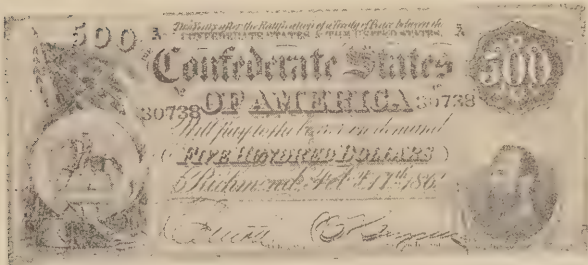 Two Years after the Ratification of a Treaty of Peace between the
CONFEDERATE STATES & THE UNITED STATES,
500 A A
Confederate States 500
30738 OF AMERICA 30738
Will pay to the bearer on demand
FIVE HUNDRED DOLLARS
Richmond Feb. 17th 186